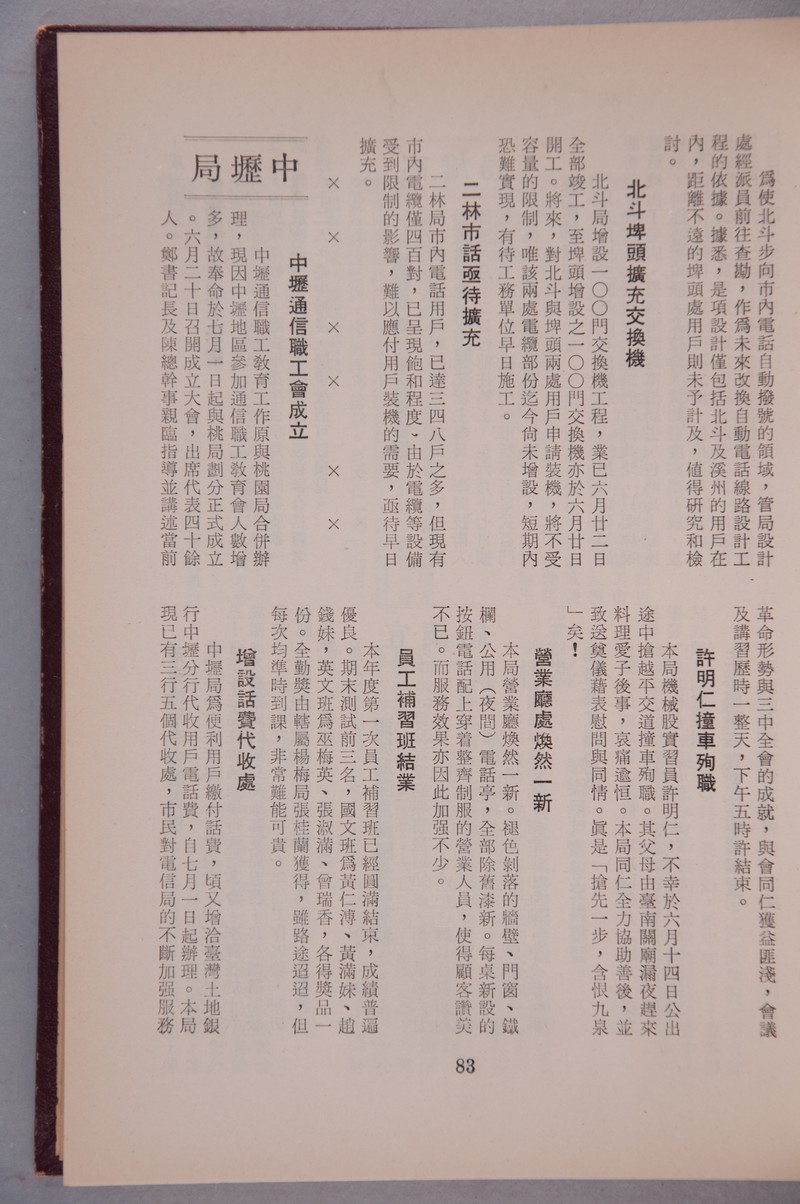 爲使北斗步向市內電話自動撥號的領域，管局設計
處經派員前往查勘，作爲未來改換自動電話線路設計工
程的依據。據悉，是項設計僅包括北斗及溪州的用戶在
內，距離不遠的埤頭處用戶則未予計及，値得研究和檢
討。
北斗埤頭擴充交換機
北斗局增設一〇〇門交換機工程，業已六月廿二日
全部竣工，至埤頭增設之一〇〇門交換機亦於六月廿日
開工。將來，對北斗與埤頭兩處用戶申請裝機，將不受
容量的限制，唯該兩處電纜部份迄今尙未增設，短期內
恐難實現，有待工務單位早日施工。
二林市話亟待擴充
二林局市內電話用戶，已達三四八戶之多，但現有
市內電纜僅四百對，已呈現飽和程度、由於電纜等設備
受到限制的影響，難以應付用戶裝機的需要，亟待早日
擴充。
×　×　×　×　×　×
中壢局
中壢通信職工會成立
中壢通信職工敎育工作原與桃園局合併辦
理，現因中壢地區參加通信職工敎育會人數增
多，故奉命於七月一日起與桃局劃分正式成立
。六月二十日召開成立大會，出席代表四十餘
人。鄭書記長及陳總幹事親臨指導並講述當前
革命形勢與三中全會的成就，與會同仁獲益匪淺，會議
及講習歷時一整天，下午五時許結束。
許明仁撞車殉職
本局機械股實習員許明仁，不幸於六月十四日公出
途中搶越平交道撞車殉職。其父母由臺南關廟漏夜趕來
料理愛子後事，哀痛逾恒。本局同仁全力協助善後，並
致送奠儀藉表慰問與同情。眞是「搶先一步，含恨九泉
」矣！
營業廳處煥然一新
本局營業廳煥然一新。褪色剝落的牆壁、門窗、鐵
欄、公用（夜間）電話亭，全部除舊漆新。每桌新設的
按鈕電話配上穿着整齊制服的營業人員，使得顧客讚美
不已。而服務效果亦因此加强不少。
員工補習班結業
本年度第一次員工補習班已經圓滿結束，成績普遍
優良。期末測試前三名，國文班爲黃仁溥、黃滿妹、趙
錢妹，英文班爲巫梅英、張淑滿、曾瑞香，各得獎品一
份。全勤獎由轄屬楊梅局張桂蘭獲得，雖路途迢迢，但
每次均準時到課，非常難能可貴。
增設話費代收處
中壢局爲便利用戶繳付話費，頃又增洽臺灣土地銀
行中壢分行代收用戶電話費，自七月一日起辦理。本局
現已有三行五個代收處，市民對電信局的不斷加强服務
83